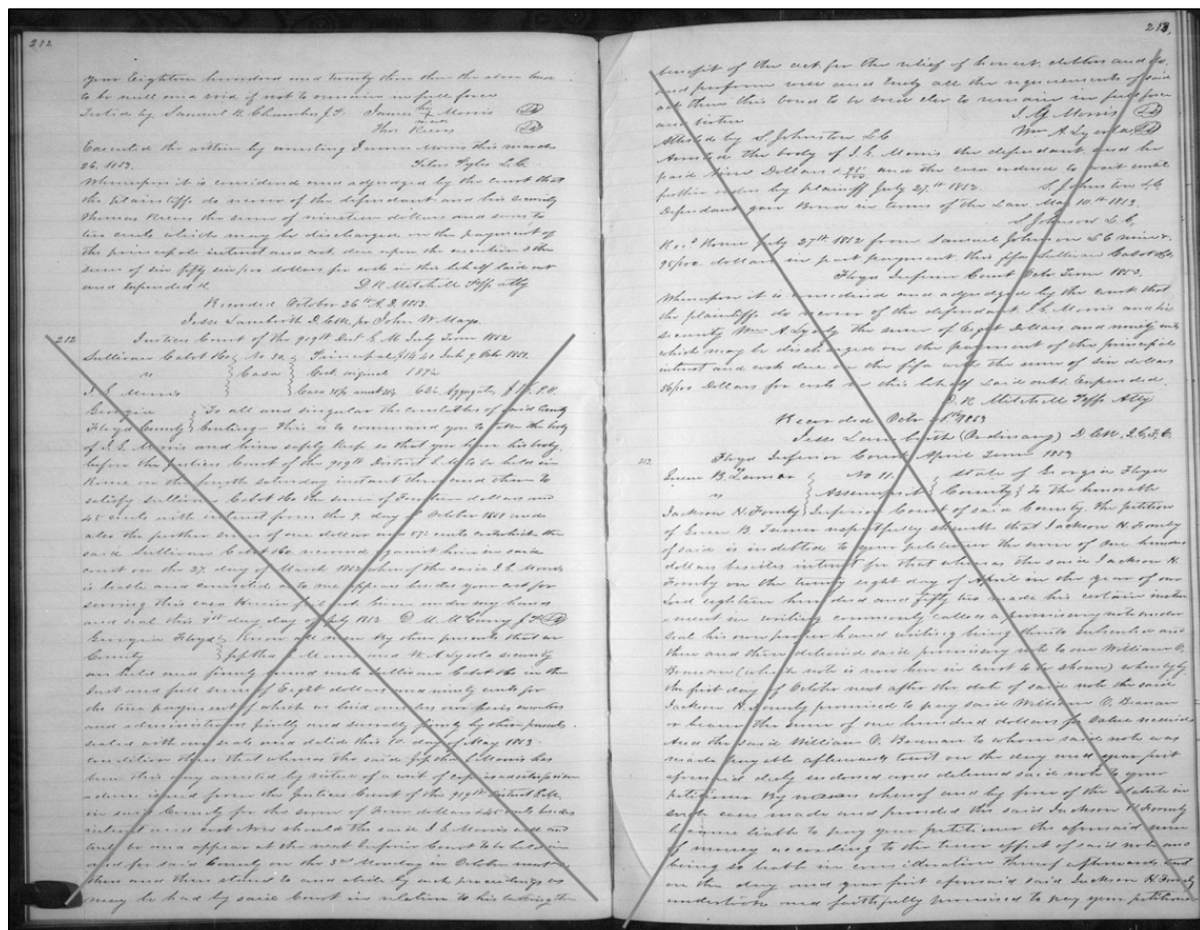 212
year Eighteen hundred and twenty then the above bond
to be null and void if not to remain in full force
Tested by Samuel B. Chambers J.P. James his mark Morris
Thos Reeves
Executed the within by arresting James Morris this march
26. 1853. L.C.
Whereupon it is considered and adjudged by the court that
the plaintiffs do recover of the defendant and his security
Thomas Reeves the sum of nineteen dollars and
cents which may be discharged on the payment of
the principal interest and cost due upon the execution & the
sum of six fifty six/100 dollars for costs in this behalf laid out
and expended D. R. Mitchell Plff atty
Recorded October 26th A.D. 1853.
Jesse Lamberth D. Clk for John W. Mayo.
212 Justices Court of the 919th Dist G. M. July Term 1852
Sullivan Cabot & Co No 30 Principal $14.45 Int 9 Octr 1851.
vs Casa Cost original 1.87½
J. G. Morris
Georgia To all and singular the constables of said County
Floyd County Greeting - This is to command you to take the body
of J. G. Morris and him safely keep so that you have his body
before the Justices Court of the 919th District G. M. to be held in
Rome on the fourth saturday instant then and there to
satisfy Sullivan Cabot & Co the sum of Fourteen dollars and
45 cents with interest from the 9. day of October 1851 and
also the further sum of one dollar and 87½ cents cost which the
said Sullivan Cabot & Co recovered against him in said
court on the 27. day of March 1852 whereof the said J. G. Morris
is liable and convicted as to me appears besides your cost for
serving this casa Herein fail not. Given under my hand
and seal this day of July 1852 J.P.
Georgia Floyd Know all men by these presents that we
County Jeptha G. Morris and W. A. Lyola security
are held and firmly bound unto Sullivan Cabot & Co in the
just and full sum of Eight dollars and ninety cents for
the true payment of which we bind ourselves our heirs executors
and administrators jointly and severally firmly by these presents
sealed with our seals and dated this 10. day of May 1853.
condition thus that whereas the said Jeptha G. Morris has
been this day arrested by virtue of a writ of capias ad satisfaciendum
issued from the Justices Court of the 919th District G. M.
in said County for the sum of Four dollars 45 cents besides
interest and cost Now should the said J. G. Morris well and
truly be and appear at the next Inferior Court to be held in
and for said County on the 3rd Monday in October next
then and there stand to and abide by such proceedings as
may be had by said Court in relation to his taking the
213.
benefit of the act for the relief of honest debtors and
and perform well and truly all the requirements of said
act then this bond to be void else to remain in full force
and virtue J. G. Morris
Attested by S. Johnston L.C. Wm A. Lyola
Arrested the body of J. G. Morris the defendant and he
paid nine Dollars & 95/100 and the casa ordered to wait until
further orders by plaintiff July 27th 1852. S. Johnston L.C.
Defendant gave Bond in terms of the Law May 10th 1853.
S. Johnson L.C.
Recd Rome July 27th 1852 from Samuel Johnson L.C. nine &
95/100. dollars in part payment this fifa Sullivan Cabot & Co
Floyd Inferior Court Octr Term 1853.
Whereupon it is considered and adjudged by the court that
the plaintiffs do recover of the defendant J. G. Morris and his
security Wm A. Lyola the sum of Eight Dollars and ninety cents
which may be discharged on the payment of the principal
interest and cost due on the fifa with the sum of six dollars
56/100 Dollars for costs in this behalf laid out & Expended.
D. R. Mitchell Plff Atty
Recorded Octr 1853
Jesse Lamberth (Ordinary) D Clk I. C. F. C.
212. Floyd Inferior Court April Term 1853
Green B. Turner No 11. State of Georgia Floyd
vs Assumpsit County To the honorable
Jackson H. Fountz Inferior Court of said County. The petition
of Green B. Turner respectfully sheweth that Jackson H. Fountz
of said is indebted to your petitioner the sum of One hundred
dollars besides interest for that whereas the said Jackson H.
Fountz on the twenty eight day of April in the year of our
Lord eighteen hundred and fifty two made his certain instru
-ment in writing commonly called a promissory note under
seal his own proper hand writing being thereto subscribed and
then and there delivered said promissory note to one William O.
Bowman (which note is now here in court to be shown) whereby
the first day of October next after the date of said note the said
Jackson H. Fountz promised to pay said William O. Bowman
or bearer the sum of one hundred dollars for value received
And the said William O. Bowman to whom said note was
made payable afterwards towit on the day and year first
aforesaid duly endorsed and delivered said note to your
petitioner By reason whereof and by force of the statute in
such cases made and provided the said Jackson H. Fountz
became liable to pay your petitioner the aforesaid sum
of money according to the tenor effect of said note and
being so liable in consideration thereof afterwards and
on the day and year first aforesaid said Jackson H. Fountz
undertook and faithfully promised to pay your petitioner